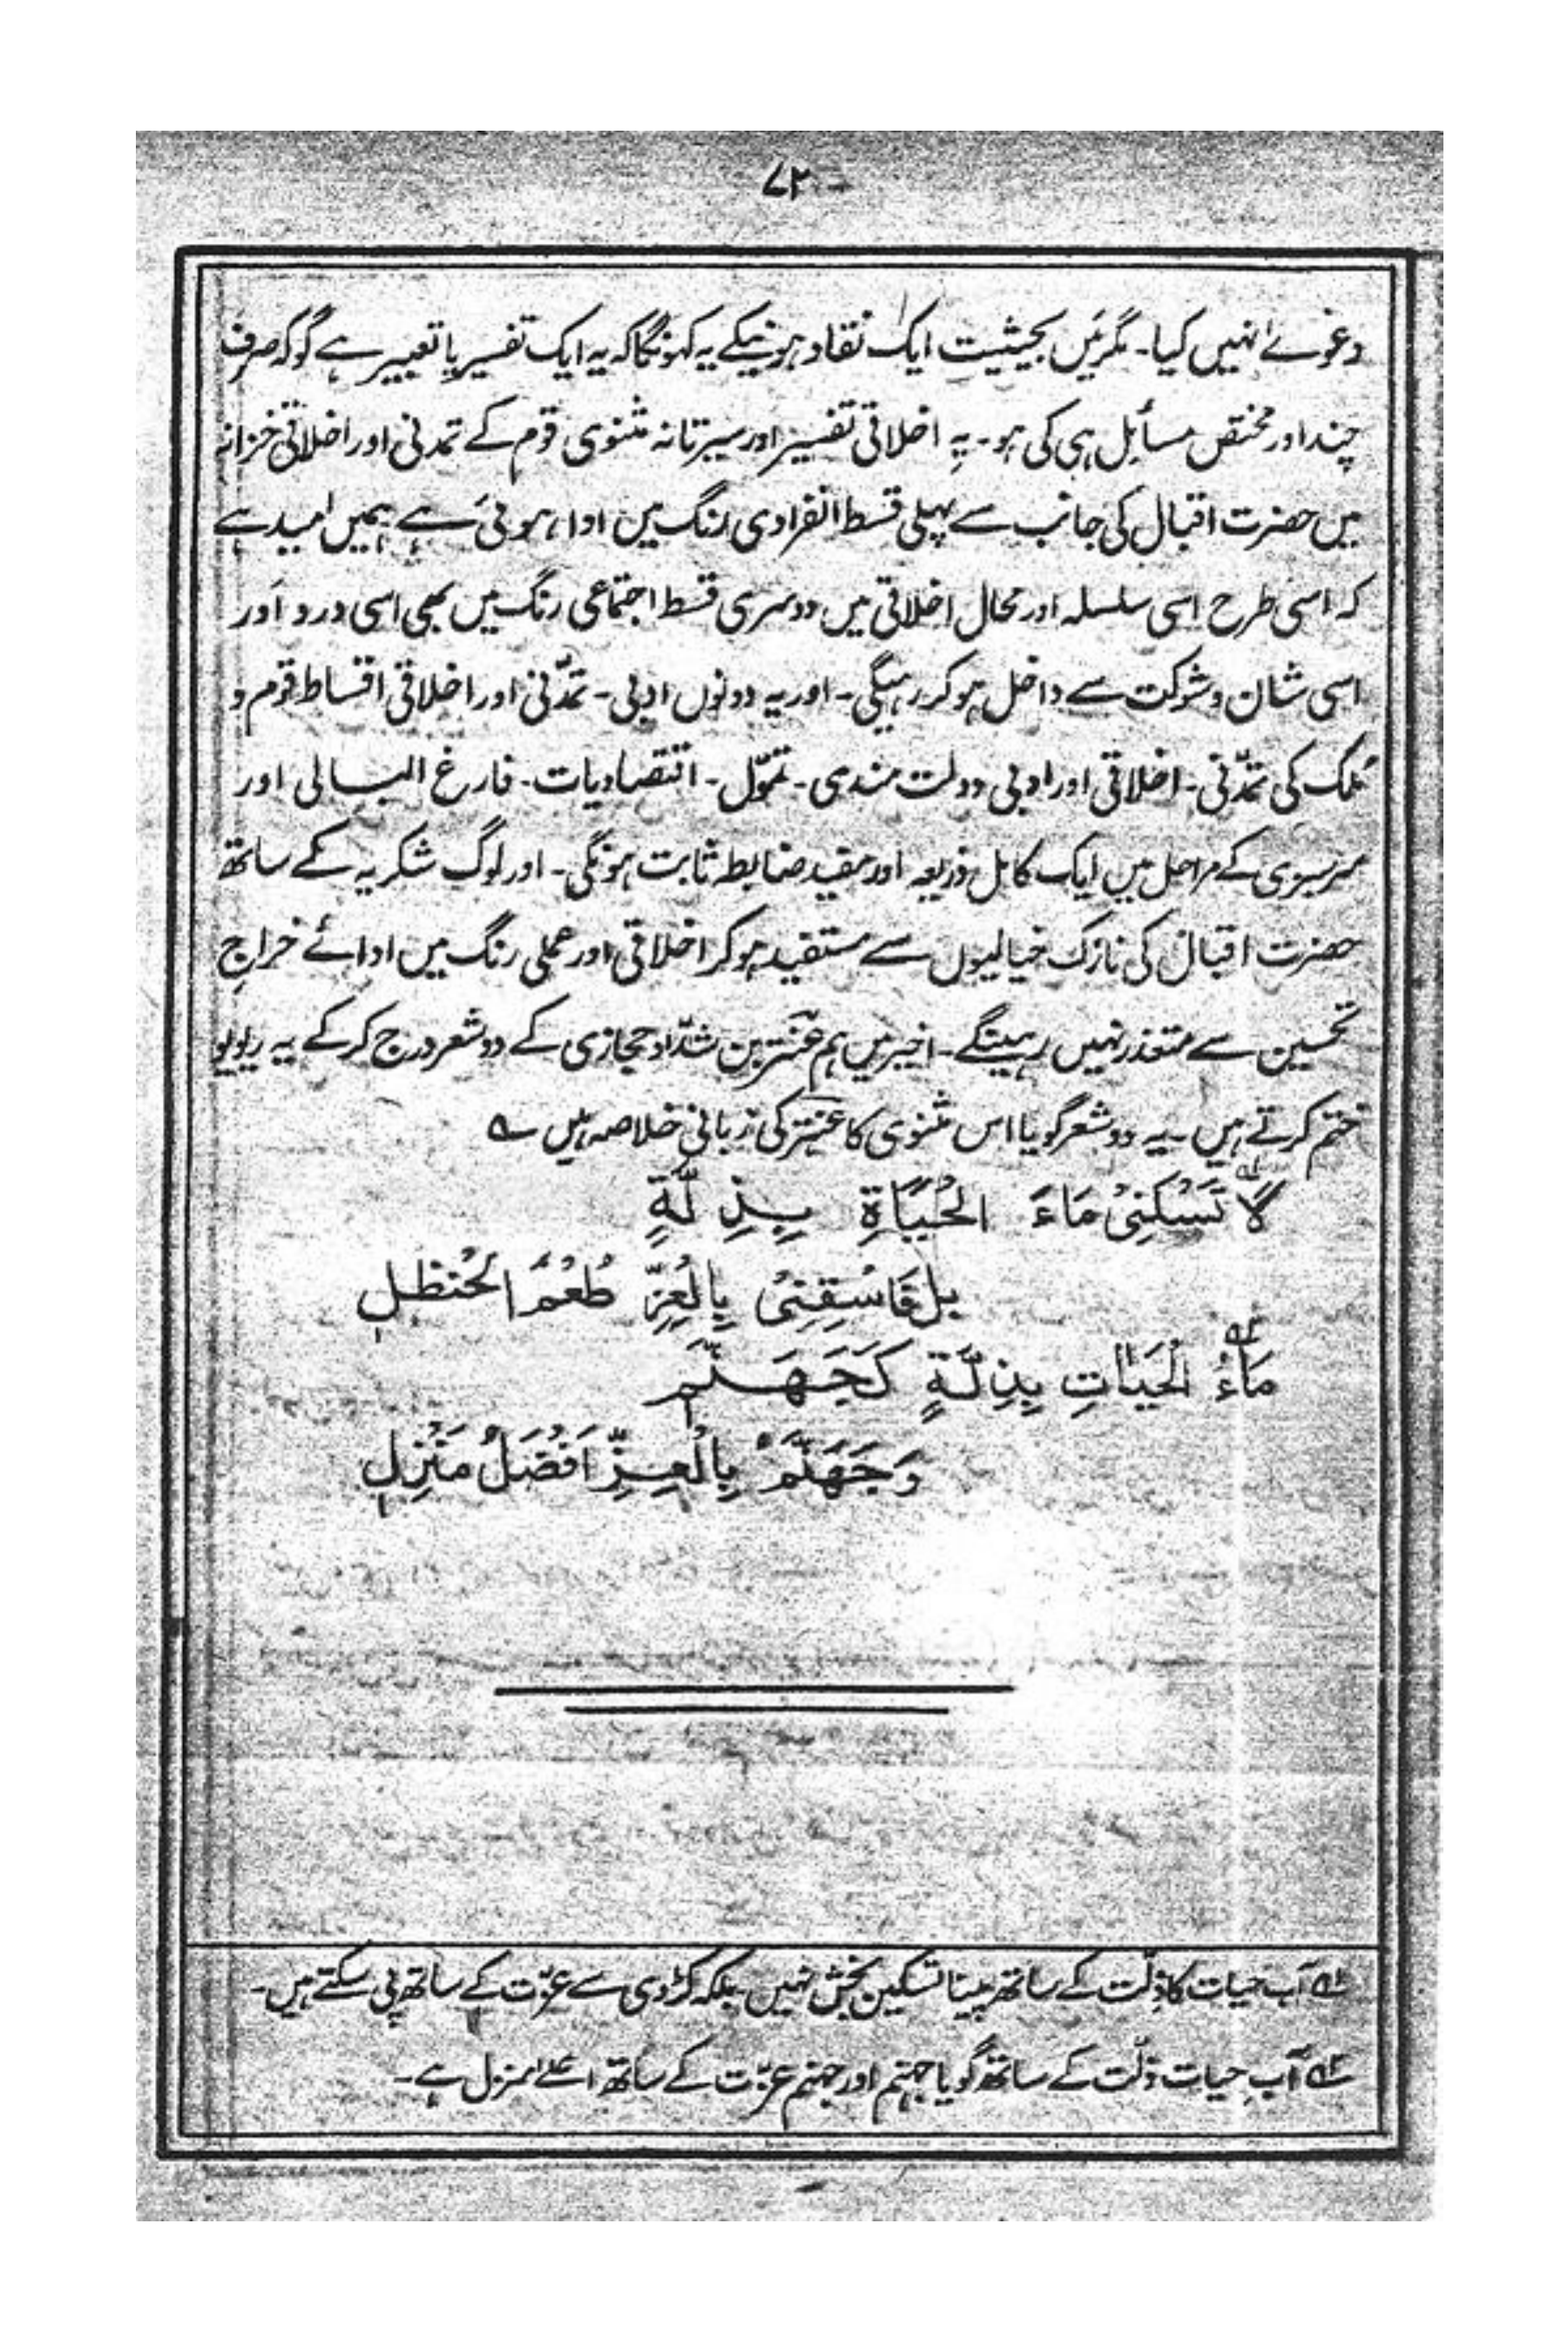 ۷۲
دعوےٰ نہیں کیا۔ مگر میں بحیثیت ایک نقاد ہونیکے یہ کہونگا کہ یہ ایک تفسیر یا تعبیر ہے گو کہ صرف
چند اور مختص مسائل ہی کی ہو۔ یہ اخلاقی تفسیر اور سیرتانہ مثنوی قوم کے تمدنی اور اخلاقی خزانہ
میں حضرت اقبال کی جانب سے پہلی قسط انفرادی رنگ میں ادا ہوئی ہے ہمیں امید ہے
کہ اسی طرح اسی سلسلہ اور محال اخلاقی میں دوسری قسط اجتماعی رنگ میں بھی اسی درد اور
اسی شان و شوکت سے داخل ہو کر رہیگی۔ اور یہ دونوں ادبی۔ تمدّنی اور اخلاقی اقساط قوم و
مُلک کی تمدّنی۔ اخلاقی اور ادبی دولت مندی۔ تموّل۔ اقتصادیات۔ فارغ البالی اور
سرسبزی کے مراحل میں ایک کامل ذریعہ اور مفید ضابطہ ثابت ہونگی۔ اور لوگ شکریہ کے ساتھ
حضرت اقبال کی نازک خیالیوں سے مستفید ہو کر اخلاقی اور عملی رنگ میں ادائے خراج
تحسین سے متعذر نہیں رہینگے۔ اخیر میں ہم عنتر بن شدّاد حجازی کے دو شعر درج کر کے یہ ریویو
ختم کرتے ہیں۔ یہ دو شعر گویا اس مثنوی کا عنتر کی زبانی خلاصہ ہیں ؎
لَا تَسْكَنِیْ مَاءَ الْحَيَاةِ بِذِلَّةٍ
بل فَاسْقِنِیْ بِالْعِزِّ طُعْمَ الْحُنظلِ
مَاءُ الْحَيَاتِ بِذِلَّةٍ كَجَهَنَّمٍ
وَجَهَنَّمْ بِالْعِزِّ اَفْضَلُ مَنْزِلِ
؎۱ آب حیات کا ذِلّت کے ساتھ پینا تسکین بخش نہیں بلکہ کڑوی سے عزّت کے ساتھ پی سکتے ہیں۔
؎۲ آبِ حیات ذلّت کے ساتھ گویا جہنم اور جہنم عزّت کے ساتھ اعلےٰ منزل ہے۔